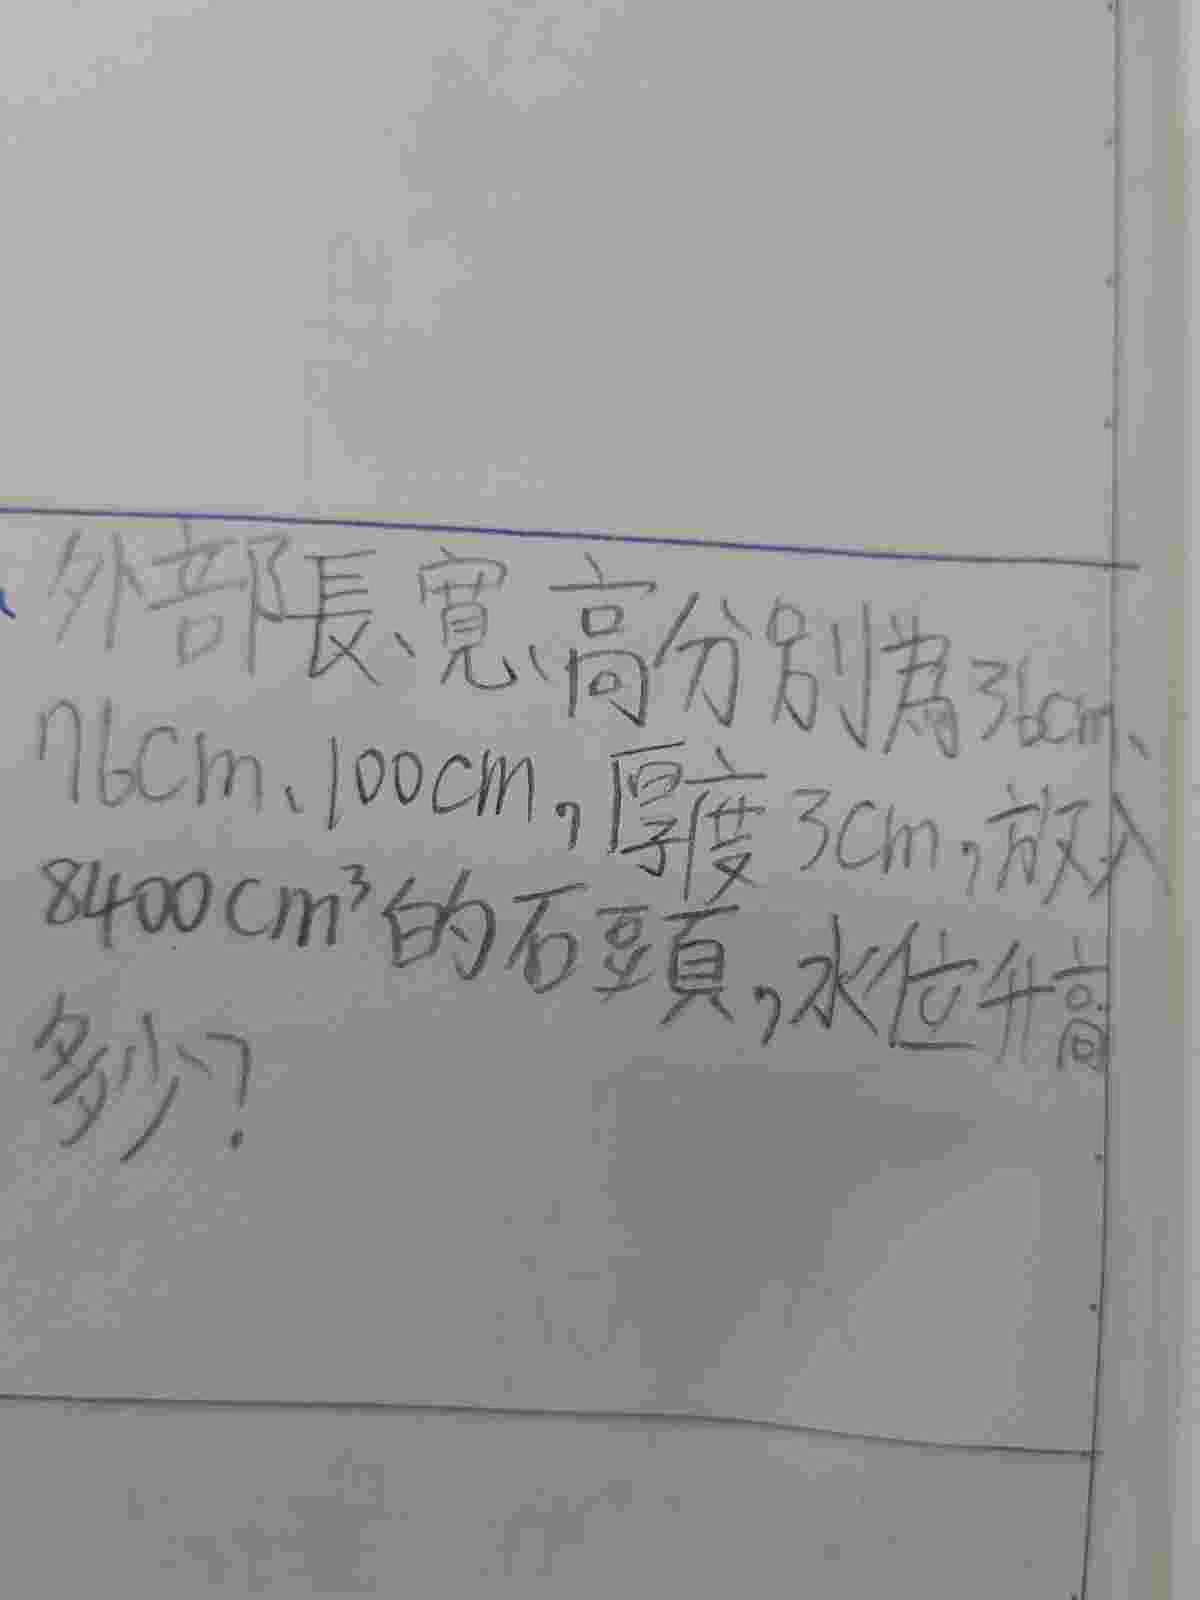 外部長、寬、高分別為36cm、
76cm、100cm,厚度3cm,放入
8400cm³的石頭,水位升高
多少?